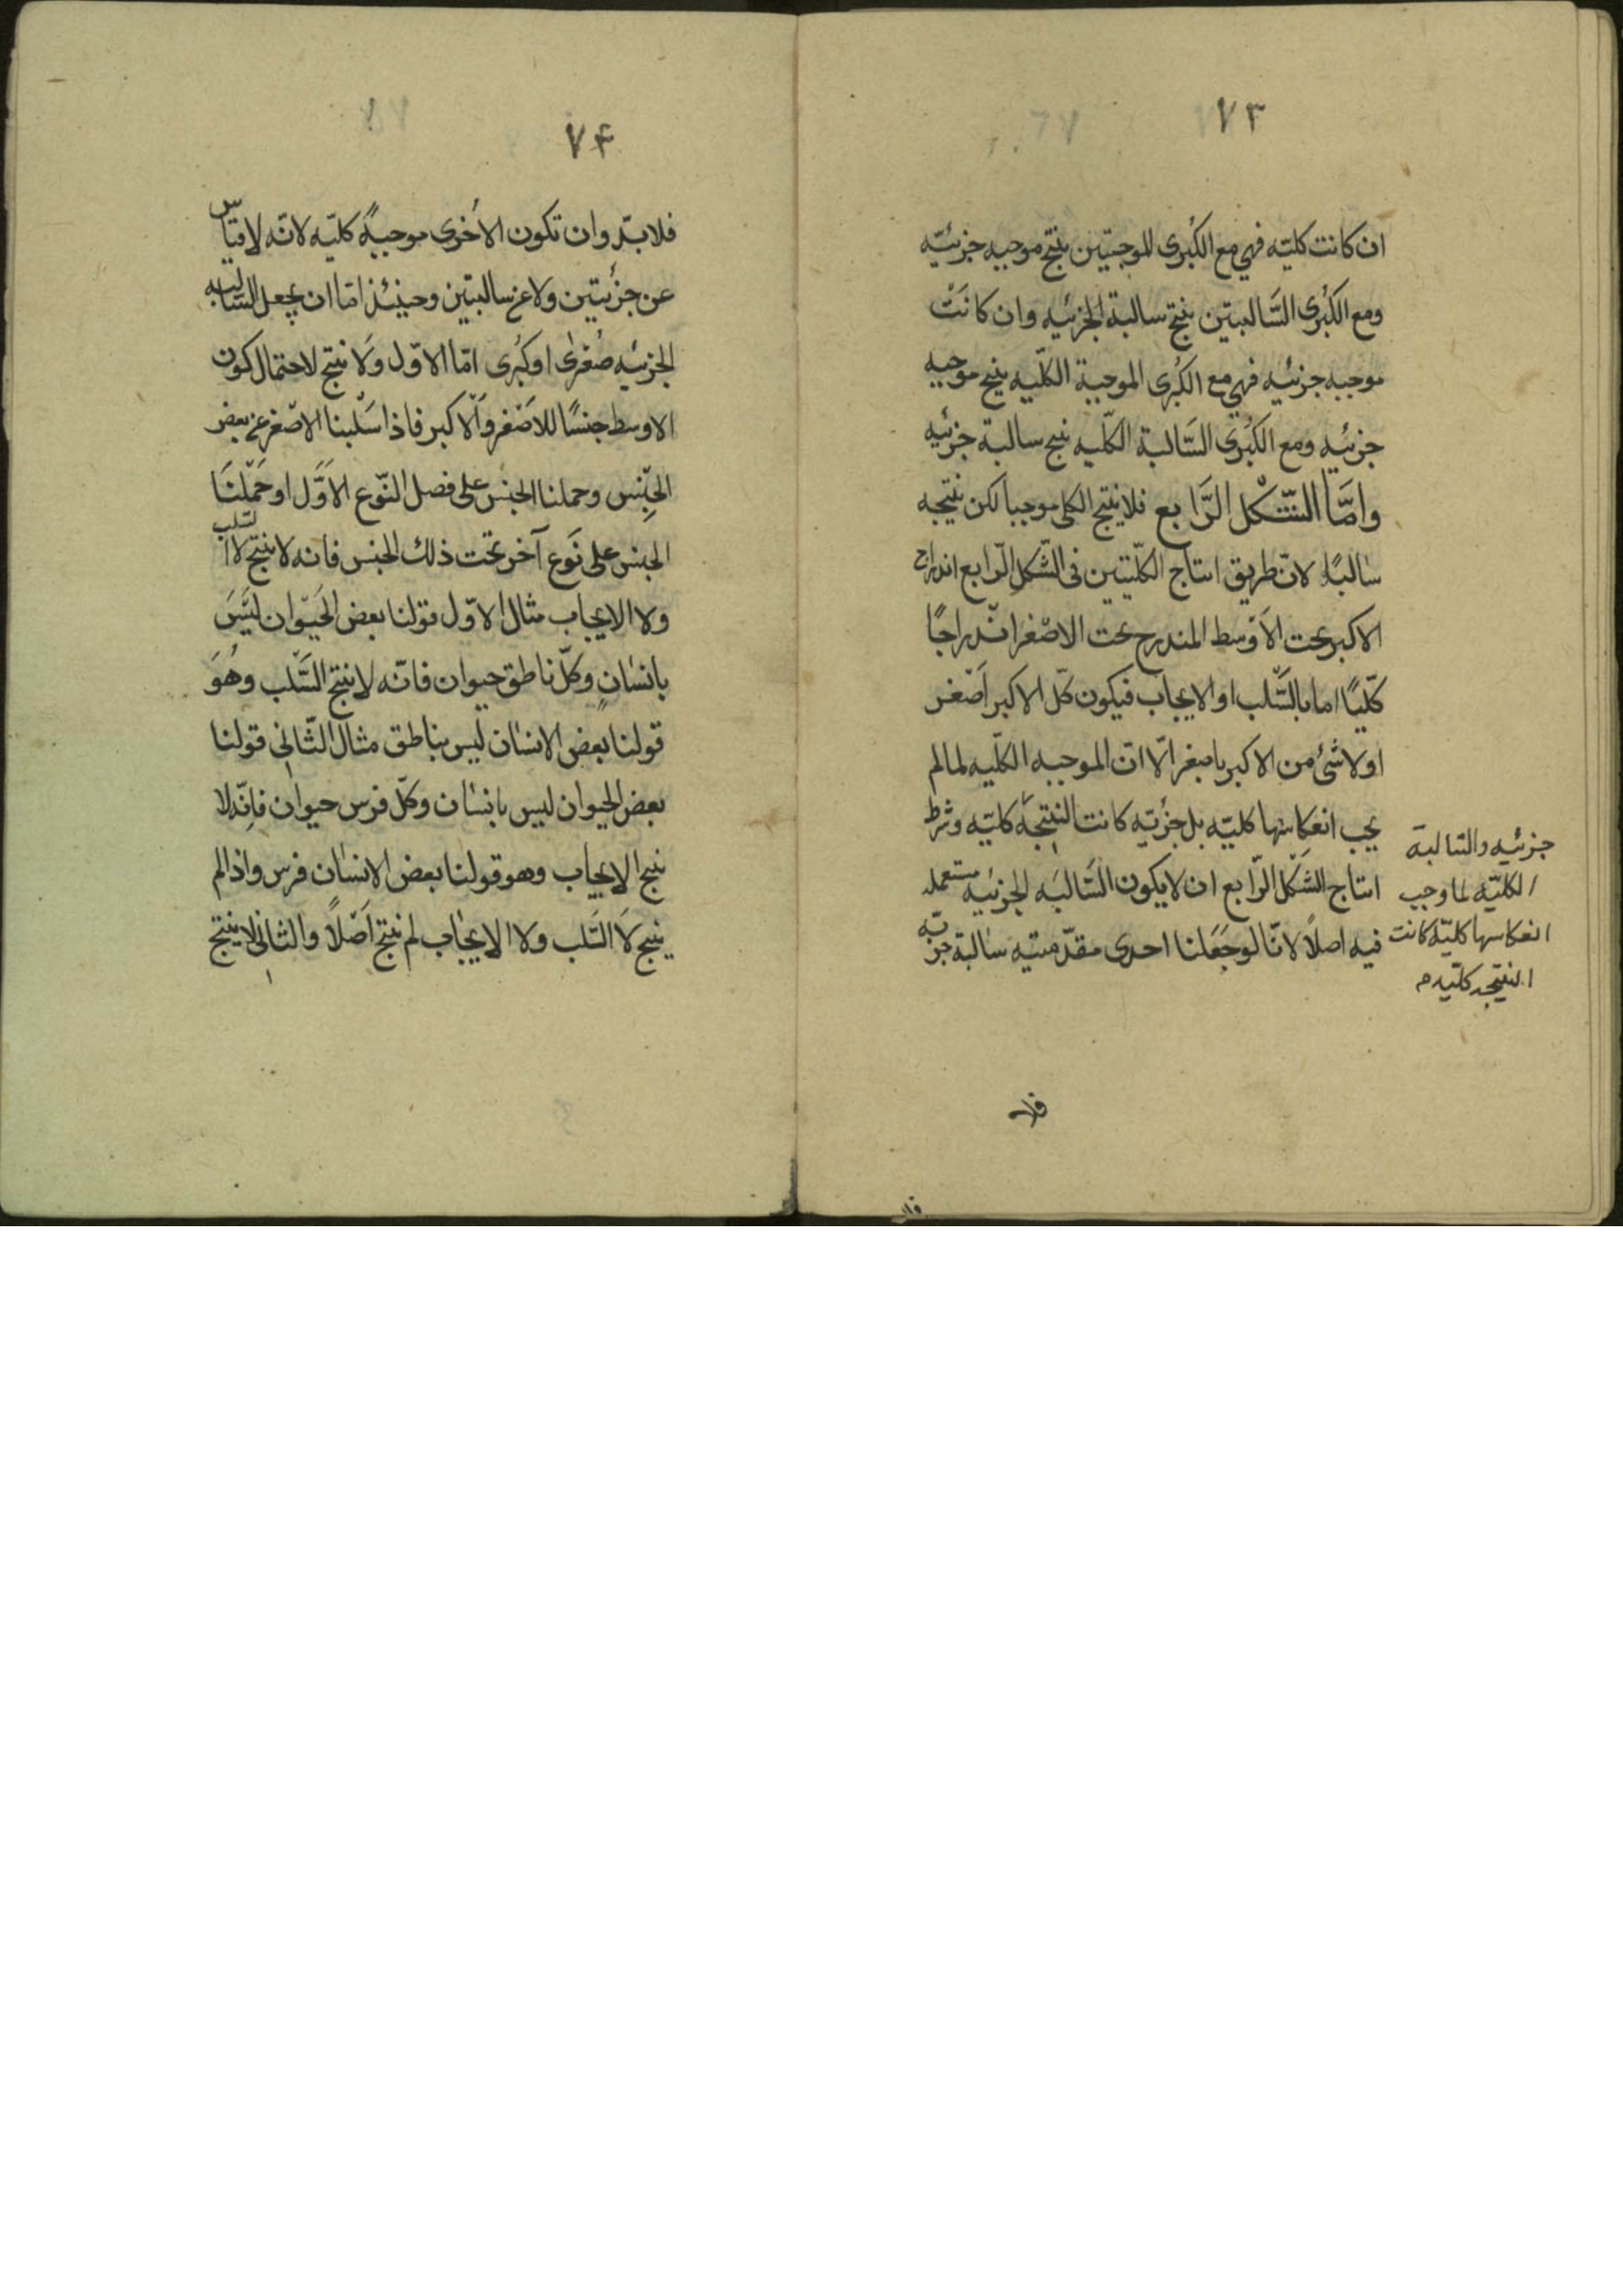 ٧٣
ان كانت كليّه فهي مع الكُبرى الموجبتين ينتج موجبه جزئيّه
ومع الكُبرى السَّالبتين ينتج سالبة الجزئيه وان كانَتْ
موجبه جزئيه فهي مع الكبُرى الموجبة الكلّيه ينتج موجبه
جزئيه ومع الكبُرى السَّالبة الكلّيه ينتج سالبة جزئيه
وامَّا الشّكْل الرَّابع فلا ينتج الكلى موجباً لكن نتيجه
سالبًا لانّ طريق انتاج الكلّيتين فى الشّكل الرّابع اندراج
الاكبر تحت الاَوسط المندرج تحت الاصْغر انْدراجًا
كلّيًا اما بالسَّلب او الايجاب فيكون كلّ الاكبر اَصْغر
او لا شئ من الاكبر باصغر الّا انّ الموجبه الكلّيه لما لم
يجب انعكاسها كليّه بل جزئيّه كانت النتيجَه كليّه وشرط
جزئيه والسّالبة
الكليّه لما وجب
انعكاسها كليّه كانت
النتيجه كلّيه م
انتاج الشّكَل الرّابع ان لا يكون السَّالبَه الجزئيه مستعمله
فيه اصلاً لانّا لو جَعَلنا احدى مقدّمتيه سالبة جزئيّه
فلا
٧۴
فلا بدّ وان تكون الاُخرى موجبةً كليّه لانّه لا قياس
عن جزئيتين ولا عن سالبتين وحينئذ امّا ان يجعل السّالبه
الجزئيه صُغرى او كبُرى امّا الاوّل وَلا ينتج لاحتمال كون
الاوسط جنسًا للاَصْغر وَالاكبر فاذا سَلْبنا الاصْغر عن بعض
الجِنْس وحملنا الجنس على فصل النّوع الاَوَّل او حَمْلنَا
الجنس على نَوع آخر تحت ذلك الجنس فانه لا ينتج لا السّلب
ولا الايجاب مثال الاوّل قولنا بعض الحَيَوان ليَسَ
بانسٰانٍ وكلّ ناطق حيوان فانّه لا ينتج السَّلب وهُوَ
قولنا بعض الانسٰان ليس بناطق مثال الثّانى قولنا
بعض الحيوان ليس بانسٰان وكلّ فرس حيوان فاِنّه لا
ينتج الايجاب وهو قولنا بعض الانسٰان فرس واذا لم
ينتج لاَ السَّلب ولا الايجٰاب لم ينتج اَصْلاً والثانى لا ينتج